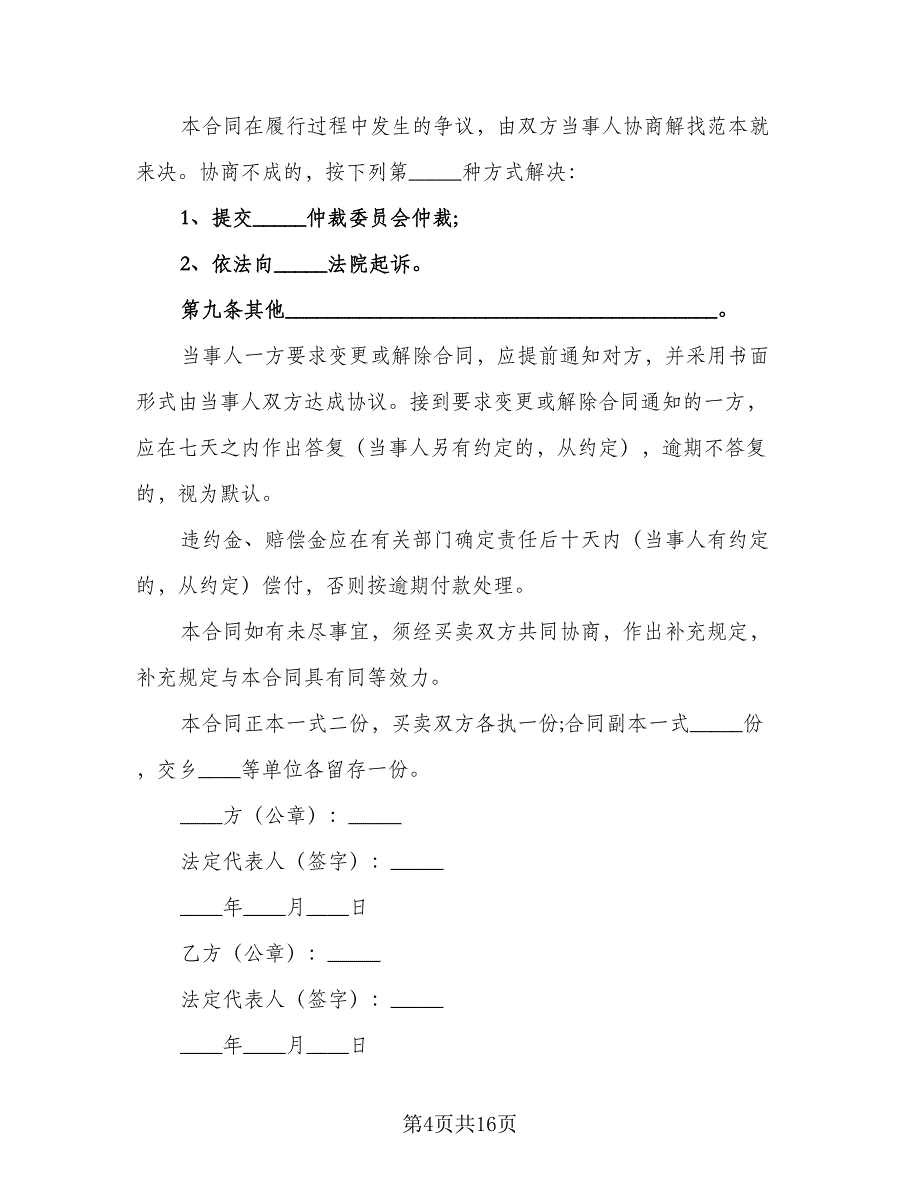 本合同在履行过程中发生的争议，由双方当事人协商解找范本就
来决。协商不成的，按下列第_____种方式解决：
1、提交_____仲裁委员会仲裁;
2、依法向_____法院起诉。
第九条其他_________________________________________。
当事人一方要求变更或解除合同，应提前通知对方，并采用书面
形式由当事人双方达成协议。接到要求变更或解除合同通知的一方，
应在七天之内作出答复（当事人另有约定的，从约定），逾期不答复
的，视为默认。
违约金、赔偿金应在有关部门确定责任后十天内（当事人有约定
的，从约定）偿付，否则按逾期付款处理。
本合同如有未尽事宜，须经买卖双方共同协商，作出补充规定，
补充规定与本合同具有同等效力。
本合同正本一式二份，买卖双方各执一份;合同副本一式_____份
，交乡____等单位各留存一份。
____方（公章）：_____
法定代表人（签字）：_____
____年____月____日
乙方（公章）：_____
法定代表人（签字）：_____
____年____月____日
第4页共16页